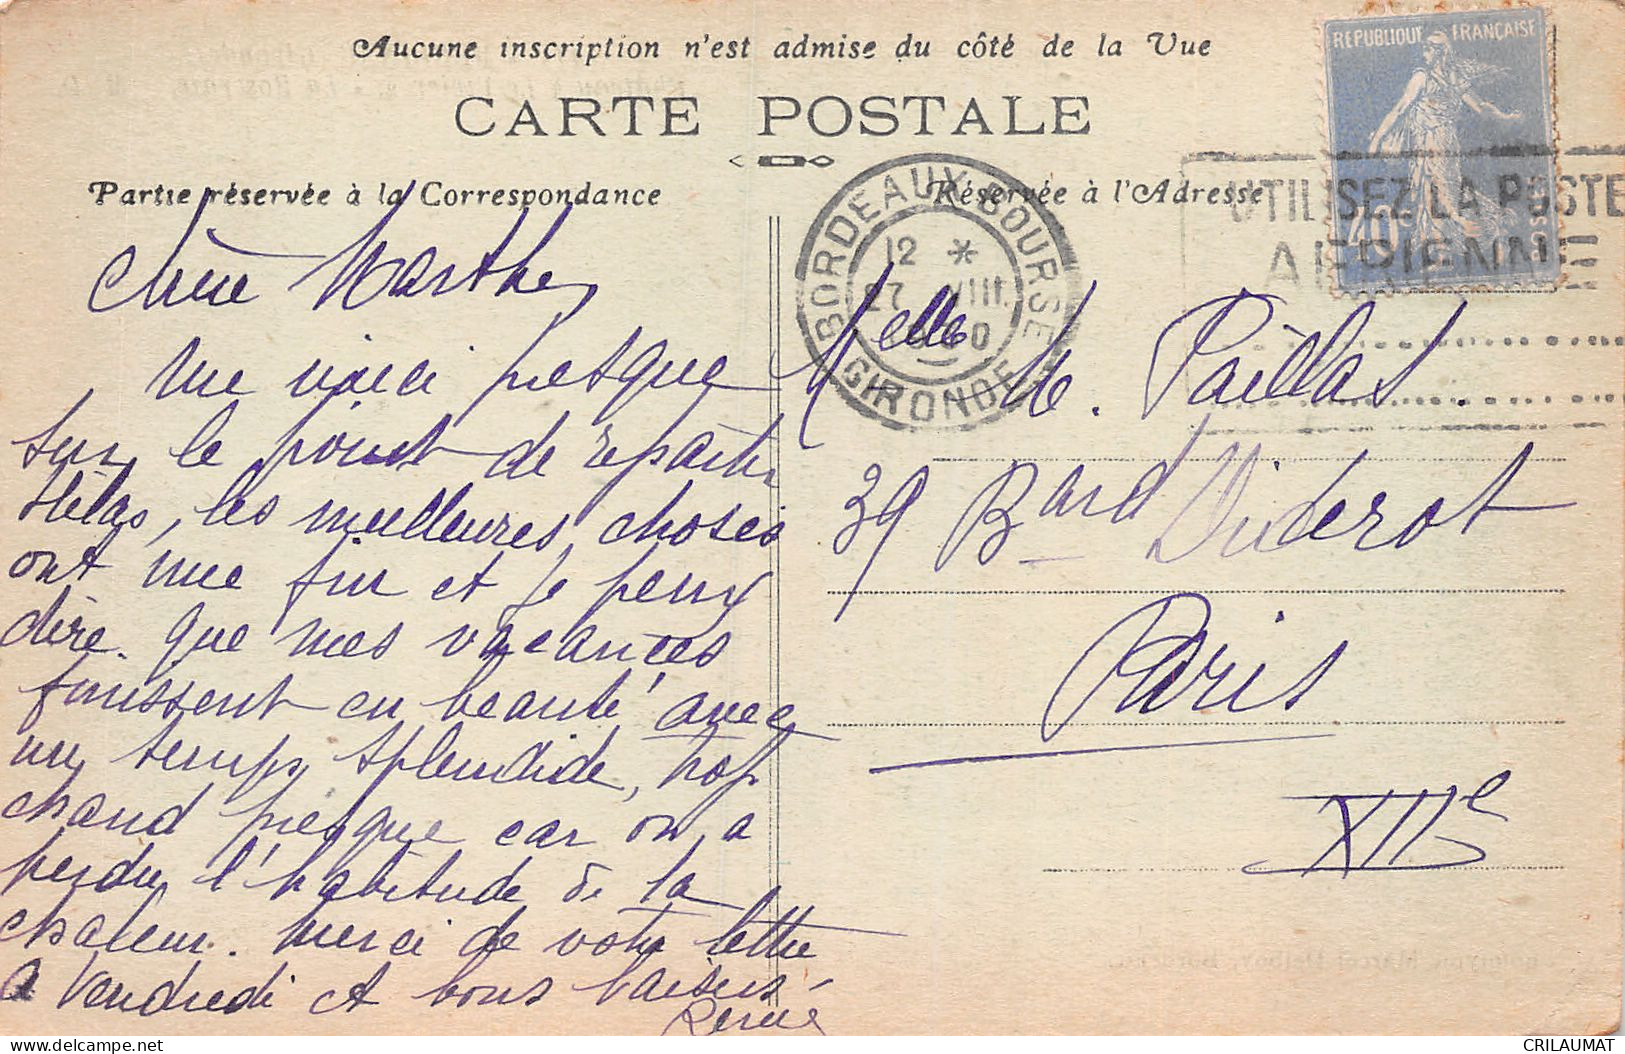 Aucune inscription n'est admise du côté de la Vue
CARTE POSTALE
Partie réservée à la Correspondance
Réservée à l'Adresse
REPUBLIQUE FRANÇAISE
40c
POSTES
BORDEAUX-BOURSE
GIRONDE
12 *
27 VIII
30
UTILISEZ LA POSTE
AERIENNE
Chère Marthe,
Me voici presque
sur le point de repartir
Hélas, les meilleures choses
ont une fin et je peux
dire que mes vacances
finissent en beauté avec
un temps splendide, trop
chaud presque car on a
perdu l'habitude de la
chaleur. Merci de votre lettre
A Vendredi et bons baisers
Melle M. Paillas.
39 Bard Diderot
Paris
XIIe
CRILAUMAT